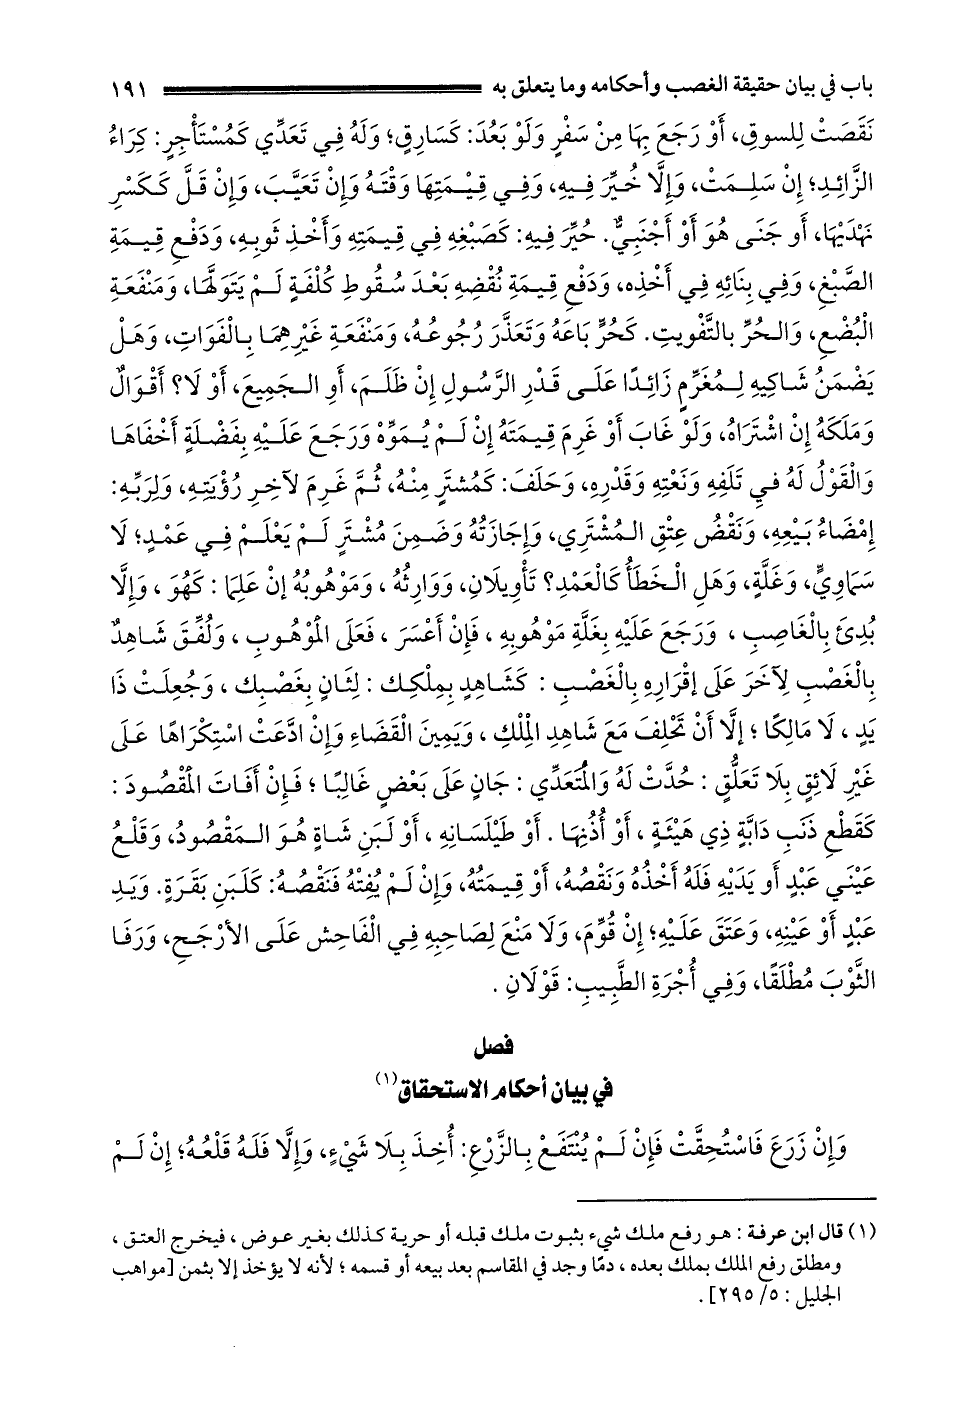 باب في بيان حقيقة الغصب وأحكامه وما يتعلق به ١٩١
نَقَصَتْ لِلسوقِ، أَوْ رَجَعَ بِهَا مِنْ سَفَرٍ وَلَوْ بَعُدَ: كَسَارِقٍ؛ وَلَهُ فِي تَعَدِّي كَمُسْتَأْجِرٍ: كِرَاءُ
الزَّائِدِ؛ إِنْ سَلِمَتْ، وَإِلَّا خُيِّرَ فِيهِ، وَفِي قِيْمَتِهَا وَقْتَهُ وَإِنْ تَعَيَّبَ، وَإِنْ قَلَّ كَكَسْرِ
نَهْدَيْهَا، أَو جَنَى هُوَ أَوْ أَجْنَبِيٌّ. خُيِّرَ فِيهِ: كَصَبْغِهِ فِي قِيمَتِهِ وَأَخْذِ ثَوبِهِ، وَدَفْعِ قِيمَةِ
الصَّبْغِ، وَفِي بِنَائِهِ فِي أَخْذِهِ، وَدَفْعِ قِيمَةِ نُقْضِهِ بَعْدَ سُقُوطِ كُلْفَةٍ لَمْ يَتَوَلَّهَا، وَمَنْفَعَةِ
الْبُضْعِ، وَالحُرِّ بالتَّفْوِيتِ. كَحُرٍّ بَاعَهُ وَتَعَذَّرَ رُجُوعُهُ، وَمَنْفَعَةِ غَيْرِهِمَا بِالْفَوَاتِ، وَهَلْ
يَضْمَنُ شَاكِيهِ لِمُغَرِّمٍ زَائِدًا عَلَى قَدْرِ الرَّسُولِ إِنْ ظَلَمَ، أَوِ الجَمِيعَ، أَوْ لَا؟ أَقْوَالٌ
وَمَلَكَهُ إِنْ اشْتَرَاهُ، وَلَوْ غَابَ أَوْ غَرِمَ قِيمَتَهُ إِنْ لَمْ يُمَوِّهْ وَرَجَعَ عَلَيْهِ بِفَضْلَةٍ أَخْفَاهَا
وَالْقَوْلُ لَهُ فيِ تَلَفِهِ وَنَعْتِهِ وَقَدْرِهِ، وَحَلَفَ: كَمُشْتَرٍ مِنْهُ، ثُمَّ غَرِمَ لآخِرِ رُؤْيَتِهِ، وَلِرَبِّهِ:
إمْضَاءُ بَيْعِهِ، وَنَقْضُ عِتْقِ المُشْتَرِي، وَإِجَازَتُهُ وَضَمِنَ مُشْتَرٍ لَمْ يَعْلَمْ فِي عَمْدٍ؛ لَا
سَمَاوِيٍّ، وَغَلَّةٍ، وَهَلِ الْخَطَأُ كَالْعَمْدِ؟ تَأْوِيلَانِ، وَوَارِثُهُ ، وَمَوْهُوبُهُ إنْ عَلِمَا : كَهُوَ ، وَإِلَّا
بُدِئَ بِالْغَاصِبِ ، وَرَجَعَ عَلَيْهِ بِغَلَّةِ مَوْهُوبِهِ ، فَإِنْ أَعْسَرَ ، فَعَلَى الْمَوْهُوبِ ، وَلُفِّقَ شَاهِدٌ
بِالْغَصْبِ لِآخَرَ عَلَى إِقْرَارِهِ بِالْغَصْبِ : كَشَاهِدٍ بِمِلْكِكَ : لِثَانٍ بِغَصْبِكَ ، وَجُعِلَتْ ذَا
يَدٍ ، لَا مَالِكًا ؛ إلَّا أَنْ تَحْلِفَ مَعَ شَاهِدِ الْمِلْكِ ، وَيَمِينَ الْقَضَاءِ وَإِنْ ادَّعَتْ اسْتِكْرَاهًا عَلَى
غَيْرِ لَائِقٍ بِلَا تَعَلُّقٍ : حُدَّتْ لَهُ وَالْمُتَعَدِّي : جَانٍ عَلَى بَعْضٍ غَالِبًا ؛ فَإِنْ أَفَاتَ الْمَقْصُودَ :
كَقَطْعِ ذَنَبِ دَابَّةِ ذِي هَيْئَةٍ ، أَوْ أُذُنِهَا . أَوْ طَيْلَسَانِهِ ، أَوْ لَبَنِ شَاةٍ هُوَ المَقْصُودُ، وَقَلْعُ
عَيْنَي عَبْدٍ أَو يَدَيْهِ فَلَهُ أَخْذُهُ وَنَقْصُهُ، أَوْ قِيمَتُهُ، وَإِنْ لَمْ يُفِتْهُ فَنَقْصُهُ: كَلَبَنِ بَقَرَةٍ. وَيَدِ
عَبْدٍ أَوْ عَيْنِهِ، وَعَتَقَ عَلَيْهِ؛ إِنْ قُوِّمَ، وَلَا مَنْعَ لِصَاحِبِهِ فِي الْفَاحِش عَلَى الأَرْجَحِ، وَرَفَا
الثَّوْبَ مُطْلَقًا، وَفِي أُجْرَةِ الطَّبِيبِ: قَوْلَانِ .
فصل
في بيان أحكام الاستحقاق(١)
وَإِنْ زَرَعَ فَاسْتُحِقَّتْ فَإِنْ لَمْ يُنْتَفَعْ بِالزَّرْعِ: أُخِذَ بِلَا شَيْءٍ، وَإِلَّا فَلَهُ قَلْعُهُ؛ إِنْ لَمْ
(١) قال ابن عرفة : هو رفع ملك شيء بثبوت ملك قبله أو حرية كذلك بغير عوض ، فيخرج العتق ،
ومطلق رفع الملك بملك بعده ، دمّا وجد في المقاسم بعد بيعه أو قسمه ؛ لأنه لا يؤخذ إلا بثمن [مواهب
الجليل : ٥/ ٢٩٥] .